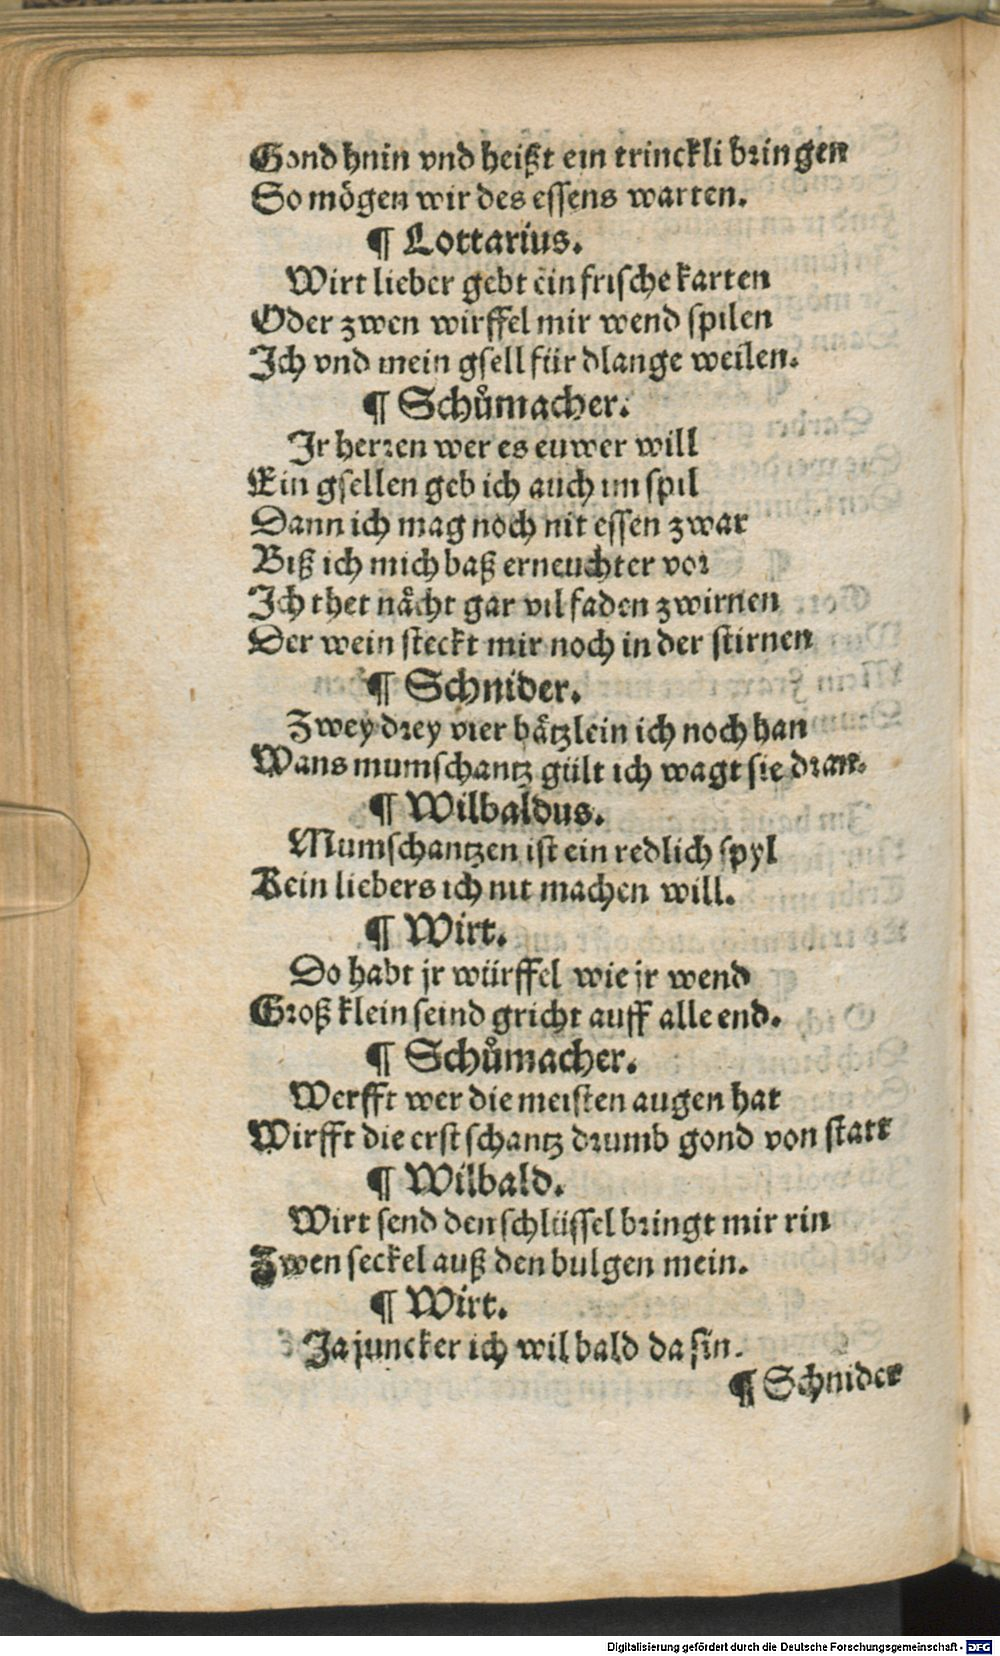 Gond hnin vnd heißt ein trinckli bringen
So mögen wir des essens warten.
¶ Lottarius.
Wirt lieber gebt ein frische karten
Oder zwen wirffel mir wend spilen
Ich vnd mein gsell für dlange weilen.
¶ Schůmacher.
Ir herren wer es euwer will
Ein gsellen geb ich auch im spil
Dann ich mag noch nit essen zwar
Biß ich mich baß erneuchter vor
Ich thet nåcht gar vil faden zwirnen
Der wein steckt mir noch in der stirnen
¶ Schnider.
Zwey drey vier båtzlein ich noch han
Wans mumschantz gült ich wagt sie dran.
¶ Wilbaldus.
Mumschantzen ist ein redlich spyl
Kein liebers ich nit machen will.
¶ Wirt.
Do habt jr würffel wie jr wend
Groß klein seind gricht auff alle end.
¶ Schůmacher.
Werfft wer die meisten augen hat
Wirfft die erst schantz drumb gond von statt
¶ Wilbald.
Wirt send den schlüssel bringt mir rin
Zwen seckel auß den bulgen mein.
¶ Wirt.
Ja juncker ich wil bald da sin.
¶ Schnider
Digitalisierung gefördert durch die Deutsche Forschungsgemeinschaft - DFG